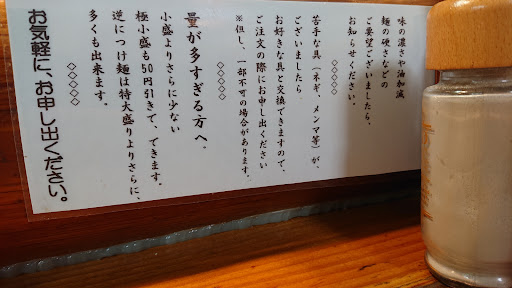 味の濃さや油加減
麺の硬さなどの
ご要望ございましたら、
お知らせください。
◇◇◇◇
苦手な具（ネギ、メンマ等）が、
ございましたら
お好きな具と交換できますので、
ご注文の際にお申し出ください
※但し、一部不可の場合があります。
◇◇◇◇
量が多すぎる方へ、
小盛よりさらに少ない
極小盛も50円引きで、できます。
逆につけ麺は特大盛りよりさらに、
多くも出来ます。
◇◇◇◇
お気軽に、お申し出ください。